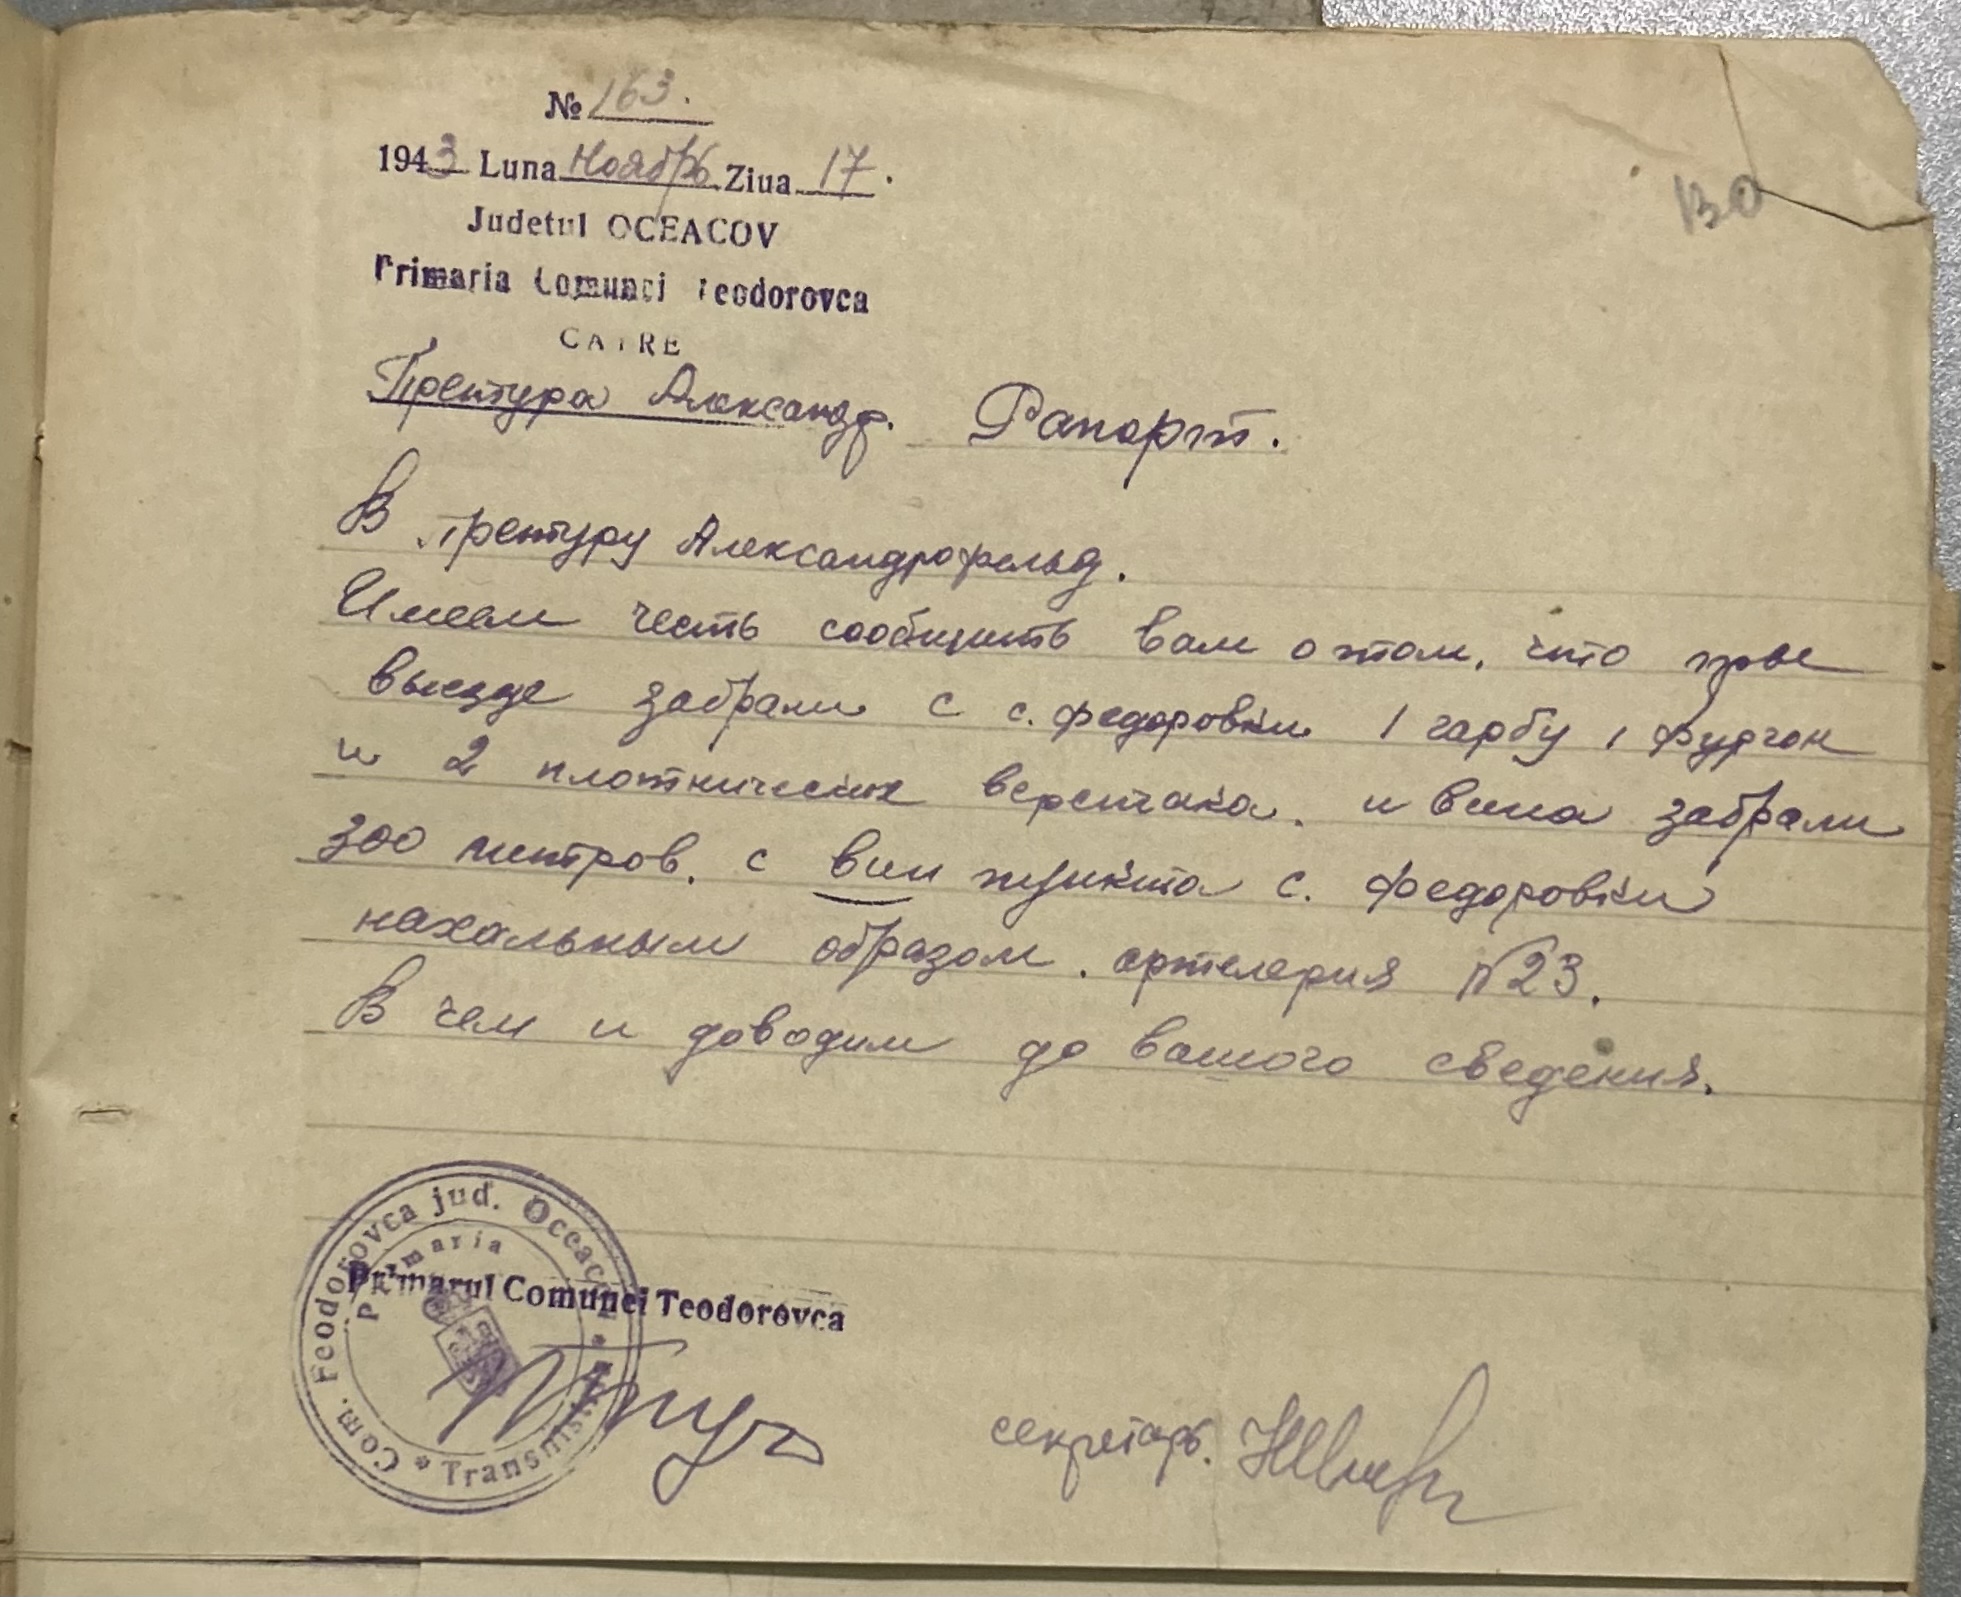 № 163.
1943 Luna Ноябрь Ziua 17.
Judetul OCEACOV
Primaria Comunei Teodorovca
CATRE
Претура Александрф. Рапорт.
130
В Претуру Александрофельд.
Имеем честь сообщить вам отом, что прве
выезде забрали с с. Федоровки 1 гарбу 1 фургон
и 2 плотнических верстака. и вина забрали
300 литров. с вин пункта с. Федоровки
нахальным образом. артелерия №23.
В чем и доводим до вашого сведения.
Com. Feodorovca jud. Oceacov * Transnistria *
Primaria
Primarul Comunei Teodorovca
секретарь.